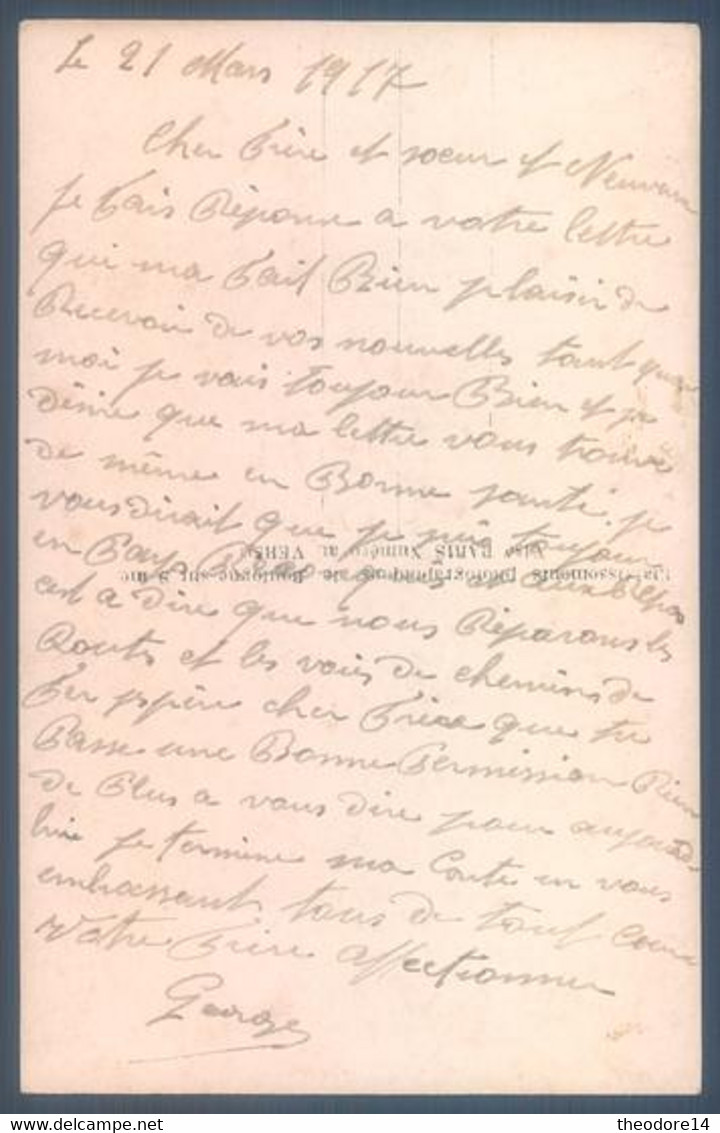 Le 21 Mars 1917
Cher Frère et soeur et Neuveu
Je Fais Réponse a votre lettre
qui ma Fait Bien plaisir de
Recevoir de vos nouvelles tant qua
moi je vais toujour Bien et je
désire que ma lettre vous trouve
de même en Bonne santé. je
vous dirait que je suis toujour
en Pays
est a dire que nous Réparons les
Routes et les voies de chemins de
Fer jespère cher Frère que tu
Passe une Bonne Permission Rien
de Plus a vous dire pour aujourd
hui je termine ma Carte en vous
embrassant tous de tout coeur
Votre Frère affectionner
George
Établissements photographiques de Boulogne-sur-Seine
Visé PARIS Numéro au VERSO
theodore14